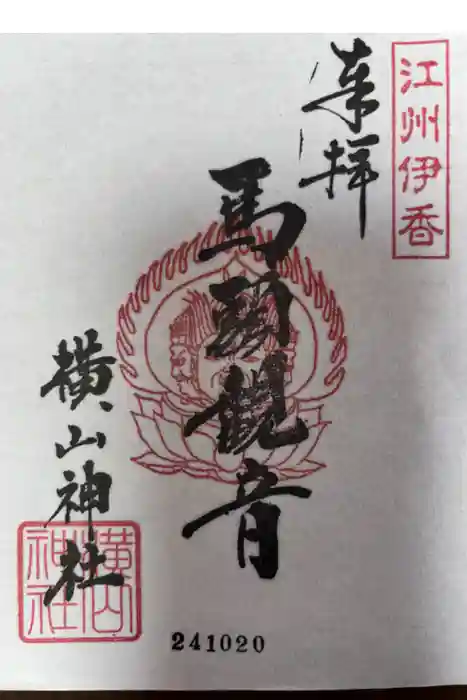 江州伊香
奉拝
馬頭觀音
横山神社
横山神社
241020